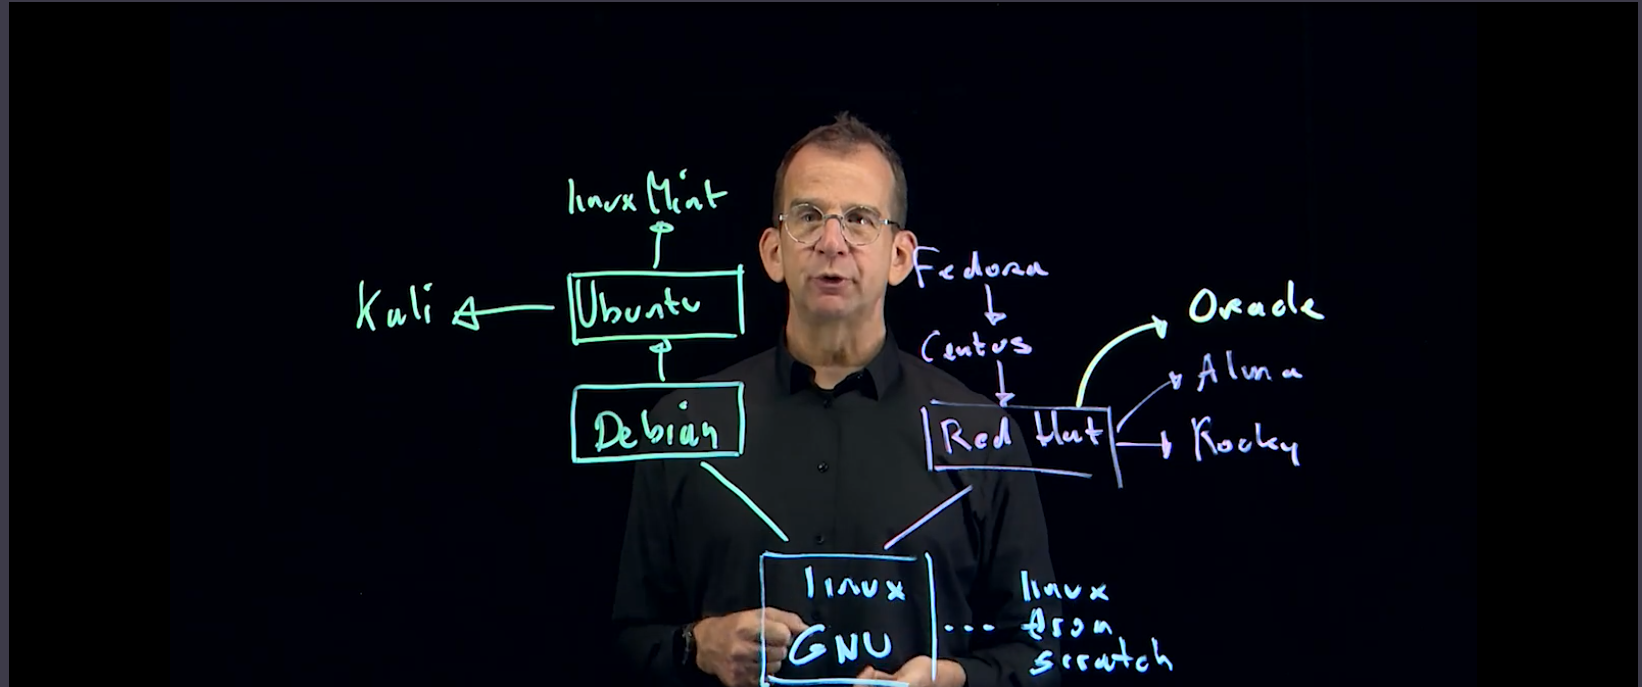 linux Mint
Ubuntu
Kali
Debian
Fedora
Centos
Red Hat
Oracle
Alma
Rocky
linux
GNU
...
linux
from
scratch